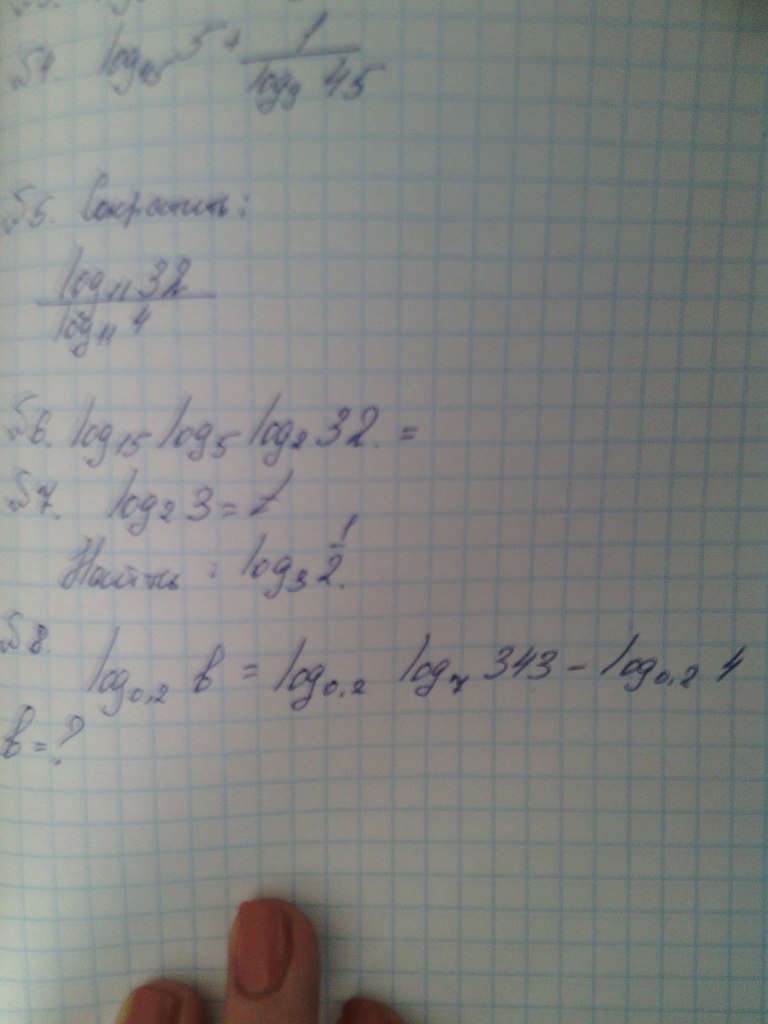 54. log₄₅ 5 + 1/(log₉ 45)
55. Сократить:
log₁₁ 32
log₁₁ 4
56. log₁₅ log₅ log₂ 32 =
57. log₂ 3 = t
Найти: log₃ 1/2.
58.
log₀,₂ b = log₀,₂ log₇ 343 - log₀,₂ 4
b = ?